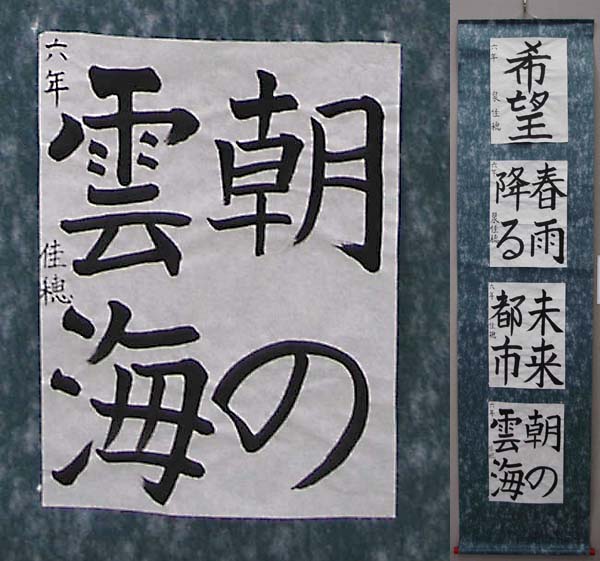 朝の
雲海
六年
佳穂
希望
六年
泉佳穂
春雨
降る
六年
泉佳穂
未来
都市
六年
佳穂
朝の
雲海
六年